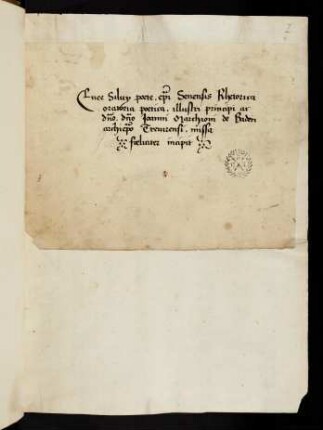 Enee Siluij poete, epi Senensis Rhetorica
oratoria poetica, illustri principi ac
dno, dno Joanni Marchioni de Baden
archiepo Treuerensi, missa
feliciter incipit